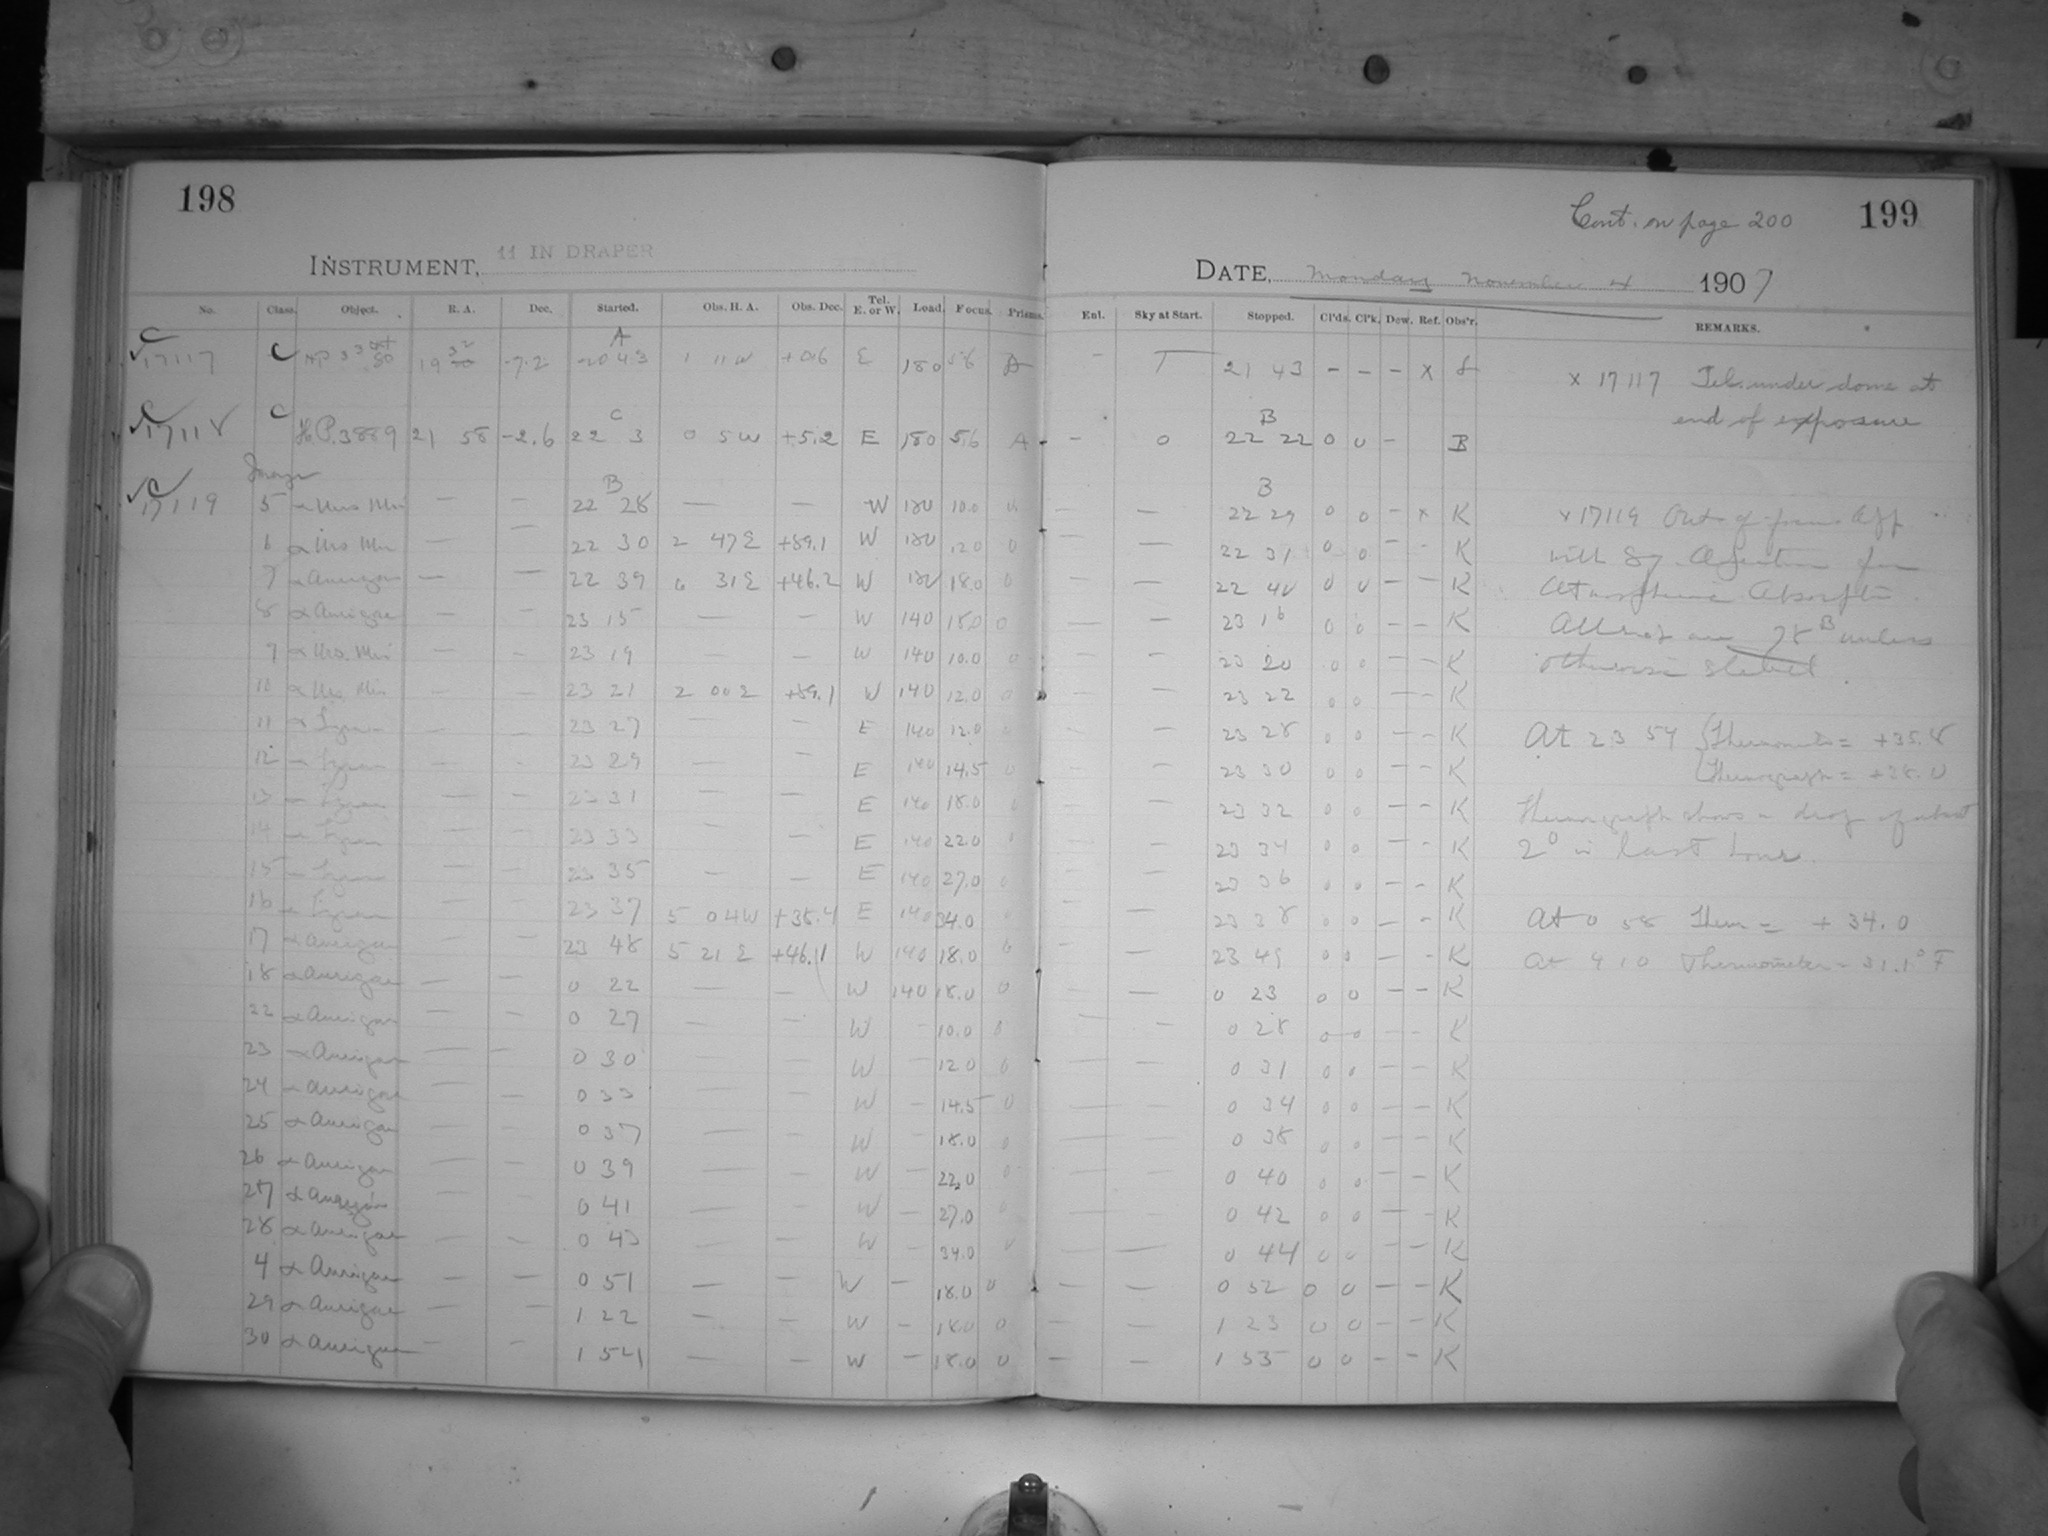 198
INSTRUMENT, 11 IN DRAPER
No. Class. Object. R. A. Dec. Started. Obs. H. A. Obs. Dec. Tel. E. or W. Load. Focus. Prisms.
A
C 17117 C HP 33 19 32 -7.2 20 43 1 11 W +0.6 E 180 5.6 A
C
C 17118 C H.P. 3889 21 58 -2.6 22 3 0 5 W +5.2 E 180 5.6 A
Image
B
C 17119 5 α Urs Min — — 22 28 — — W 180 10.0 0
6 α Urs Min — 22 30 2 47 E +89.1 W 180 12.0 0
7 α Aurigae — — 22 39 6 31 E +46.2 W 180 18.0 0
8 α Aurigae — — 23 15 — — W 140 18.0 0
9 α Urs. Min — — 23 19 — — W 140 10.0 0
10 α Urs. Min — — 23 21 2 00 E +89.1 W 140 12.0 0
11 α Lyrae — — 23 27 — — E 140 12.0 0
12 α Lyrae — — 23 29 — E 140 14.5 0
13 α Lyrae — — 23 31 — — E 140 18.0 0
14 α Lyrae — — 23 33 — — E 140 22.0
15 α Lyrae — — 23 35 — — E 140 27.0 0
16 α Lyrae — — 23 37 5 04 W +38.4 E 140 34.0 0
17 α Aurigae — — 23 48 5 21 E +46.1 W 140 18.0 0
18 α Aurigae — — 0 22 — — W 140 18.0 0
22 α Aurigae — — 0 27 — — W - 10.0 0
23 α Aurigae — — 0 30 — W - 12.0 0
24 α Aurigae — — 0 33 — W - 14.5 0
25 α Aurigae — 0 37 — — W 18.0 0
26 α Aurigae — — 0 39 — — W - 22.0 0
27 α Aurigae — 0 41 — — W - 27.0
28 α Aurigae — — 0 43 — — W - 34.0 0
4 α Aurigae — — 0 51 — — W - 18.0 0
29 α Aurigae — — 1 22 — — W - 18.0 0
30 α Aurigae — - 1 54 — — W - 18.0 0
Cont. on page 200 199
DATE, Monday November 4 1907
Enl. Sky at Start. Stopped. Cl'ds. Cl'k. Dew. Ref. Obs'r. REMARKS.
- T 21 43 - - - x S x 17117 Tel. under dome at
end of exposure
B
- 0 22 22 0 0 - B
B
— — 22 29 0 0 - x K x 17119 Out of focus
— — 22 31 0 0 - - K
— — 22 40 0 0 - - K Atmospheric Absorption
— — 23 16 0 0 - - K All are 78 B unless
- - 23 20 0 0 - - K otherwise stated
— — 23 22 0 0 - - K
— — 23 28 0 0 - - K At 23 54 Thermometer = +35.8
— — 23 30 0 0 - - K Thermograph = +28.0
— — 23 32 0 0 - - K Thermograph shows a drop of about
— — 23 34 0 0 - - K 2° in last hour.
— — 23 36 0 0 - - K
— — 23 38 0 0 - - K At 0 58 Ther = + 34.0
— — 23 49 0 0 - - K At 4 10 Thermometer = 31.1° F
— — 0 23 0 0 - - K
— — 0 28 0 0 - - K
— — 0 31 0 0 - - K
— — 0 34 0 0 - - K
— — 0 38 0 0 - - K
— — 0 40 0 0 - - K
— — 0 42 0 0 - - K
— — 0 44 0 0 - - K
— — 0 52 0 0 - - K
— — 1 23 0 0 - - K
— — 1 55 0 0 - - K